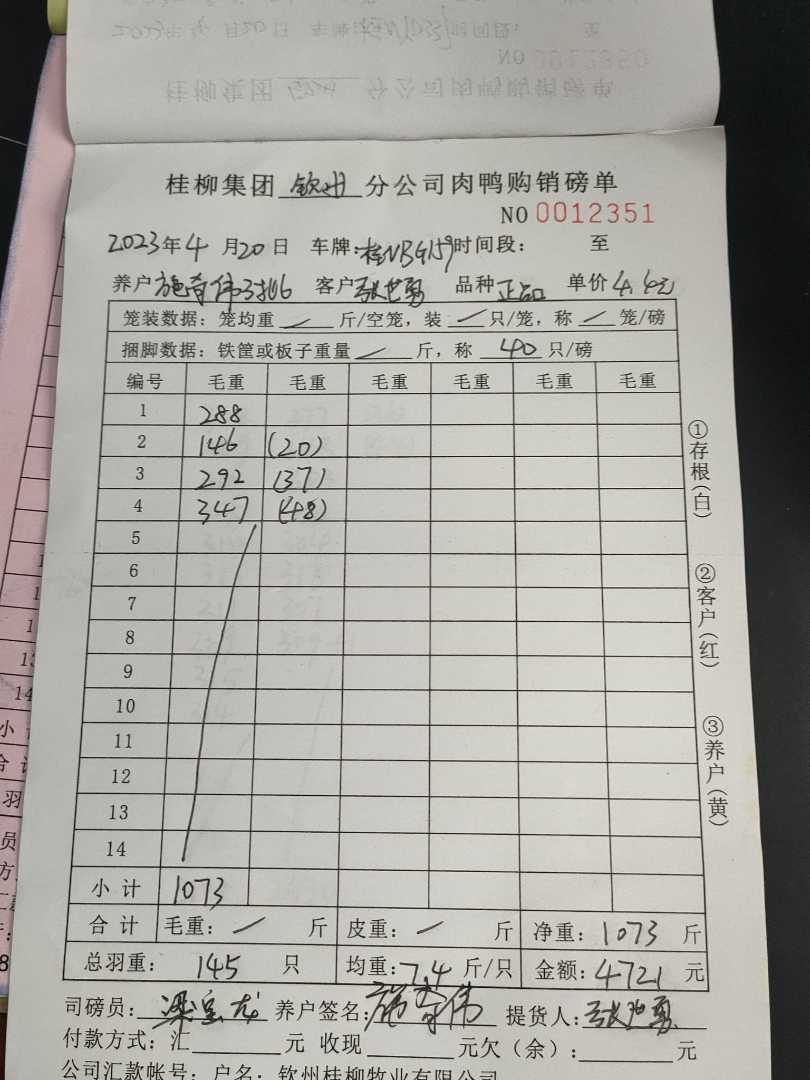 桂柳集团 钦州 分公司肉鸭购销磅单
NO 0012351
2023年4月20日 车牌:桂NB9159 时间段: 至
养户 施奇伟 客户 张世勇 品种 正品 单价 4.4元
笼装数据:笼均重 / 斤/空笼,装 / 只/笼,称 / 笼/磅
捆脚数据:铁筐或板子重量 / 斤,称 40 只/磅
编号 毛重 毛重 毛重 毛重 毛重 毛重
1 288
2 146 (20)
3 292 (37)
4 347 (48)
5
6
7
8
9
10
11
12
13
14
小计 1073
合计 毛重: / 斤 皮重: / 斤 净重: 1073 斤
总羽重: 145 只 均重: 7.4 斤/只 金额: 4721 元
司磅员: 养户签名: 施奇伟 提货人: 张世勇
付款方式:汇 元 收现 元欠(余): 元
公司汇款帐号:户名:钦州桂柳牧业有限公司
①存根(白)
②客户(红)
③养户(黄)